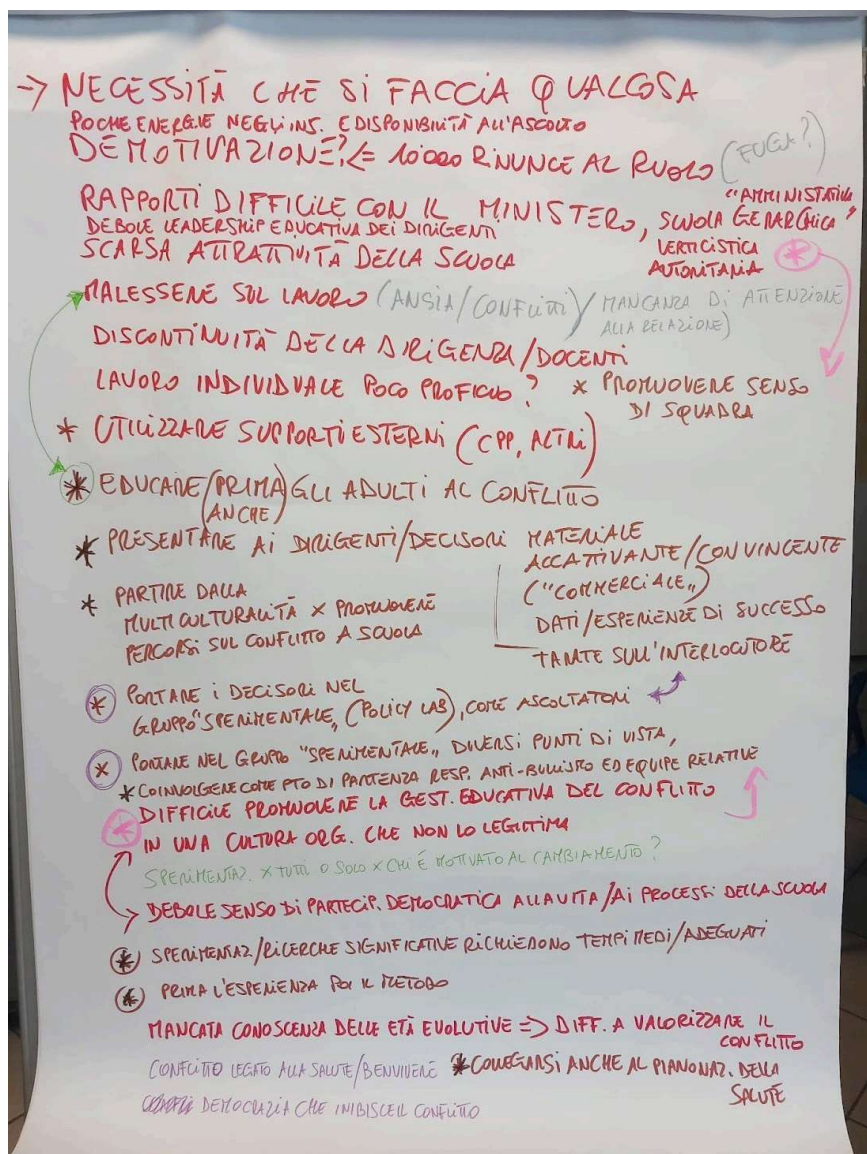 → NECESSITÀ CHE SI FACCIA QUALCOSA
POCHE ENERGIE NEGLI INS. E DISPONIBILITÀ ALL'ASCOLTO
DEMOTIVAZIONE? <= 10000 RINUNCE AL RUOLO (FUGA?)
RAPPORTI DIFFICILE CON IL MINISTERO, SCUOLA GERARCHICA
"AMMINISTATIVA"
VERTICISTICA
AUTORITARIA *
DEBOLE LEADERSHIP EDUCATIVA DEI DIRIGENTI
SCARSA ATTRATTIVITÀ DELLA SCUOLA
MALESSERE SUL LAVORO (ANSIA/CONFLITTI/MANCANZA DI ATTENZIONE
ALLA RELAZIONE)
DISCONTINUITÀ DELLA DIRIGENZA/DOCENTI
LAVORO INDIVIDUALE POCO PROFICUO?
* PROMUOVERE SENSO
DI SQUADRA
* UTILIZZARE SUPPORTI ESTERNI (CPP, ALTRI)
* EDUCARE (PRIMA) GLI ADULTI AL CONFLITTO
(ANCHE)
* PRESENTARE AI DIRIGENTI/DECISORI MATERIALE
ACCATTIVANTE/CONVINCENTE
("COMMERCIALE")
DATI/ESPERIENZE DI SUCCESSO
TARATE SULL'INTERLOCUTORE
* PARTIRE DALLA
MULTICULTURALITÀ X PROMUOVERE
PERCORSI SUL CONFLITTO A SCUOLA
* PORTARE I DECISORI NEL
GRUPPO "SPERIMENTALE" (POLICY LAB), COME ASCOLTATORI
* PORTARE NEL GRUPPO "SPERIMENTALE" DIVERSI PUNTI DI VISTA,
* COINVOLGERE COME PTO DI PARTENZA RESP. ANTI-BULLISMO ED EQUIPE RELATIVE
* DIFFICILE PROMUOVERE LA GEST. EDUCATIVA DEL CONFLITTO
IN UNA CULTURA ORG. CHE NON LO LEGITTIMA
SPERIMENTAZ. X TUTTI O SOLO X CHI È MOTIVATO AL CAMBIAMENTO?
DEBOLE SENSO DI PARTECIP. DEMOCRATICA ALLA VITA/AI PROCESSI DELLA SCUOLA
* SPERIMENTAZ/RICERCHE SIGNIFICATIVE RICHIEDONO TEMPI MEDI/ADEGUATI
* PRIMA L'ESPERIENZA POI IL METODO
MANCATA CONOSCENZA DELLE ETÀ EVOLUTIVE => DIFF. A VALORIZZARE IL
CONFLITTO
CONFLITTO LEGATO ALLA SALUTE/BENVIVERE * COLLEGARSI ANCHE AL PIANO NAZ. DELLA
SALUTE
DEMOCRAZIA CHE INIBISCE IL CONFLITTO